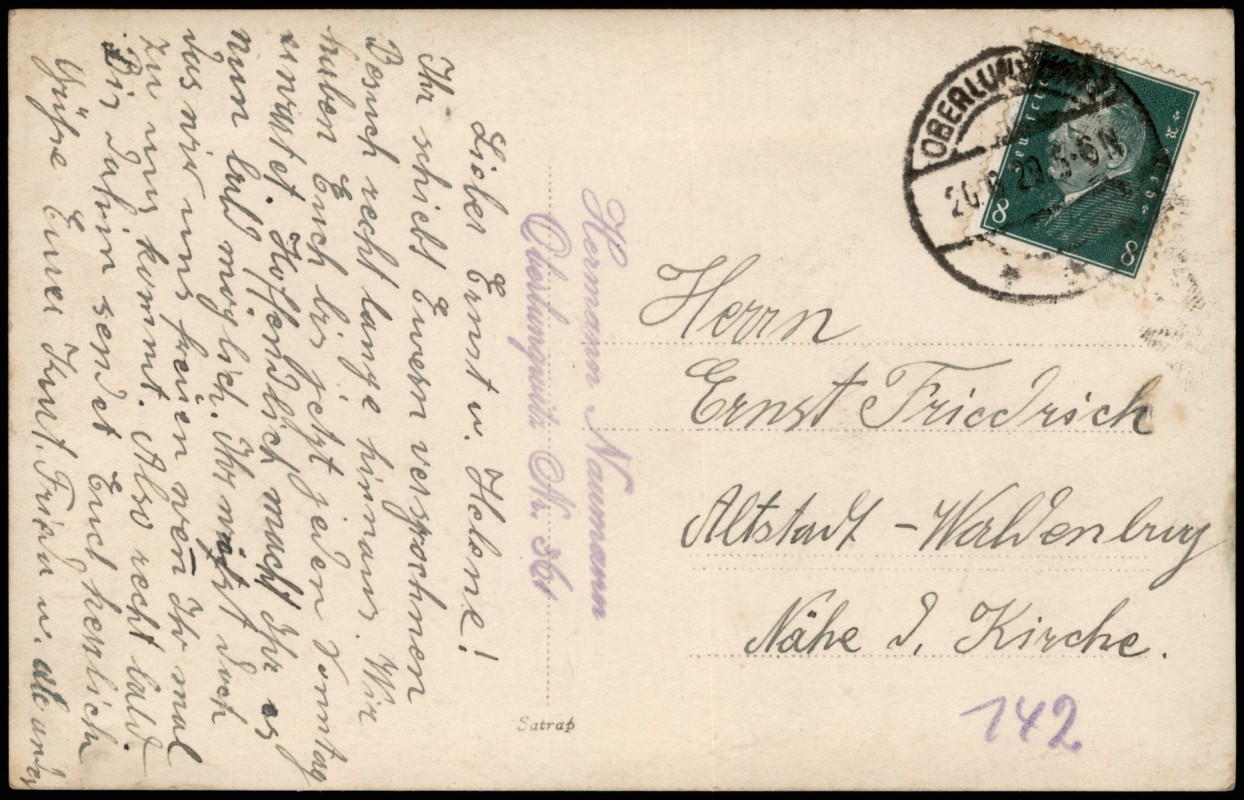 Lieber Ernst u. Helene!
Ihr schiebt Euern versprochnen
Besuch recht lange hinaus. Wir
haben Euch bis jetzt jeden Sonntag
erwartet. Hoffendlich macht Ihr es
nun bald möglich. Ihr wißt doch
das wir uns freuen wen̄ Ihr mal
zu uns kommt. Also recht bald.
Bis dahin sendet Euch herzliche
Grüße Eurer Kurt, Frieda u.
Hermann Naumann
Oberlungwitz Nr. 361
OBERLUNGWITZ
20.6.29.5-6N
Deutsches Reich
8
8
Herrn
Ernst Friedrich
Altstadt-Waldenburg
Nähe d. Kirche.
142
Satrap